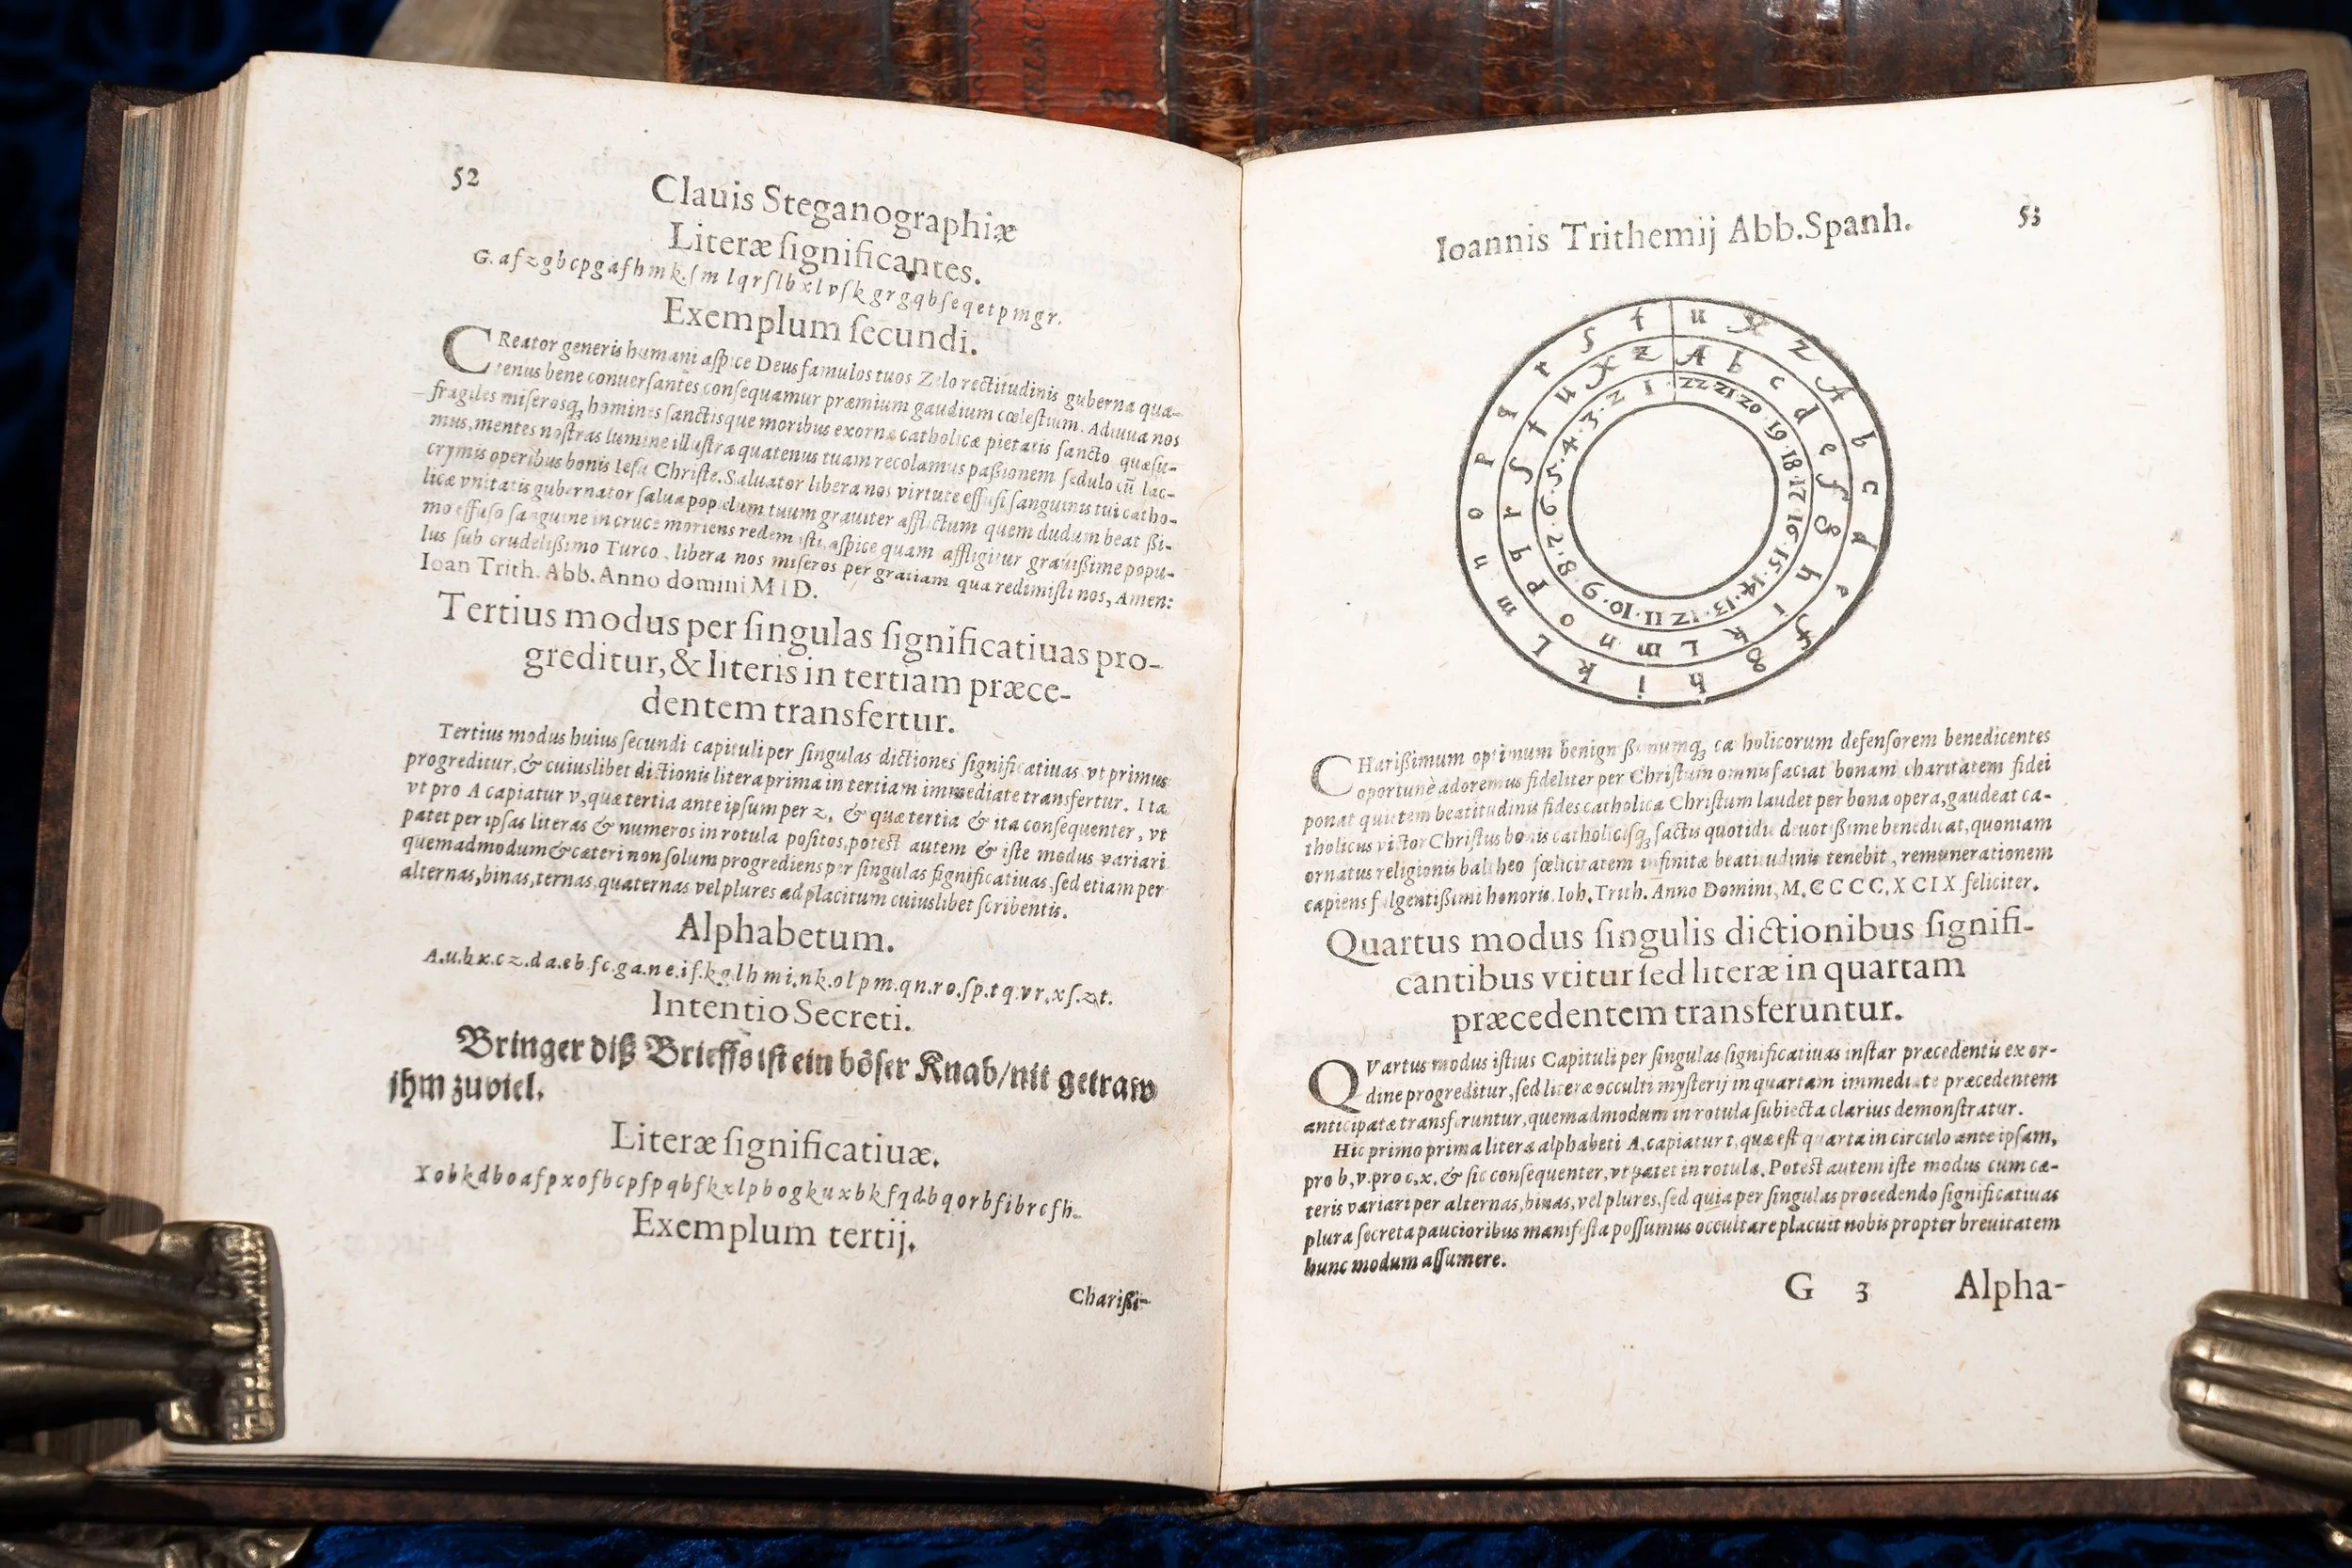 52
Clauis Steganographiæ
Literæ ſignificantes.
G. afzgbcpgafhmk.ſm lqrſlbxlvſkgrgqbſeqetpmgr.
Exemplum ſecundi.
CReator generis humani aſpice Deus famulos tuos Zelo rectitudinis guberna qua-
tenus bene conuerſantes conſequamur præmium gaudium cœleſtium. Adiuua nos
fragiles miſerosq; homines ſanctisque moribus exorna catholicæ pietatis ſancto quæſu-
mus, mentes noſtras lumine illuſtra quatenus tuam recolamus paßionem ſedulo cū lac-
crymis operibus bonis Ieſu Chriſte. Saluator libera nos virtute effuſi ſanguinis tui catho-
licæ vnitatis gubernator ſalua populum tuum grauiter afflictum quem dudum beatißi-
mo effuſo ſanguine in cruce moriens redemiſti, aſpice quam affligitur grauißime popu-
lus ſub crudelißimo Turco, libera nos miſeros per gratiam qua redimiſti nos, Amen:
Ioan Trith. Abb. Anno domini M I D.
Tertius modus per ſingulas ſignificatiuas pro-
greditur, & literis in tertiam præce-
dentem transfertur.
Tertius modus huius ſecundi capituli per ſingulas dictiones ſignificatiuas vt primus
progreditur, & cuiuslibet dictionis litera prima in tertiam immediate transfertur. Ita
vt pro A capiatur v, quæ tertia ante ipſum per z. & quæ tertia & ita conſequenter, vt
patet per ipſas literas & numeros in rotula poſitos, poteſt autem & iſte modus variari
quemadmodum & cæteri non ſolum progrediens per ſingulas ſignificatiuas, ſed etiam per
alternas, binas, ternas, quaternas vel plures ad placitum cuiuslibet ſcribentis.
Alphabetum.
A.u.bx.cz.da.eb.fc.ga.ne.if.kg.lh mi.nk.ol pm.qn.ro.ſp.tq.vr.xſ.zt.
Intentio Secreti.
Bringer diß Brieffs iſt ein böſer Knab/nit getraw
jhm zuviel.
Literæ ſignificatiuæ.
Xobkdboafpxofbcpfpqbfkxlpbogkuxbkfqdbqorbfibrcfh.
Exemplum tertij.
Charißi-
Ioannis Trithemij Abb. Spanh.
53
u X z A b c d e f g h i k L m n o p q r ſ t
A b c d e ſ g h i k L m n o p q r ſ t u X z
22 21 20 19 18 17 16 15 14 13 12 11 10 9 8 7 6 5 4 3 2 1
CHarißimum optimum benignißimumq; catholicorum defenſorem benedicentes
oportunè adoremus fideliter per Chriſtum omnis faciat bonam charitatem fidei
ponat quietem beatitudinis fides catholica Chriſtum laudet per bona opera, gaudeat ca-
tholicus victor Chriſtus bonis catholicisq; ſactis quotidie deuotißime benedicat, quoniam
ornatus religionis baltheo fœlicitatem infinitæ beatitudinis tenebit, remunerationem
capiens fulgentißimi honoris. Ioh. Trith. Anno Domini, M. C C C C. X C I X feliciter.
Quartus modus ſingulis dictionibus ſignifi-
cantibus vtitur ſed literæ in quartam
præcedentem transferuntur.
QVartus modus iſtius Capituli per ſingulas ſignificatiuas inſtar præcedentis ex or-
dine progreditur, ſed literæ occulti myſterij in quartam immediate præcedentem
anticipatæ transferuntur, quemadmodum in rotula ſubiecta clarius demonſtratur.
Hic primo prima litera alphabeti A, capiatur t, quæ eſt quarta in circulo ante ipſam,
pro b, v. pro c, x. & ſic conſequenter, vt patet in rotula. Poteſt autem iſte modus cum cæ-
teris variari per alternas, binas, vel plures, ſed quia per ſingulas procedendo ſignificatiuas
plura ſecreta paucioribus manifeſta poſſumus occultare placuit nobis propter breuitatem
hunc modum aſſumere.
G 3 Alpha-